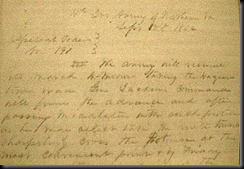 Hd Qrs Army of Northern Va
Sept 9th 1862
Special Orders }
No 191 }
III The Army will resume
its march to-morrow taking the Hagers
town road. Gen Jackson's Command
will form the advance and after
passing Middletown with such portion
as he may select take the route toward
Sharpsburg cross the Potomac at the
most convenient point & by Friday